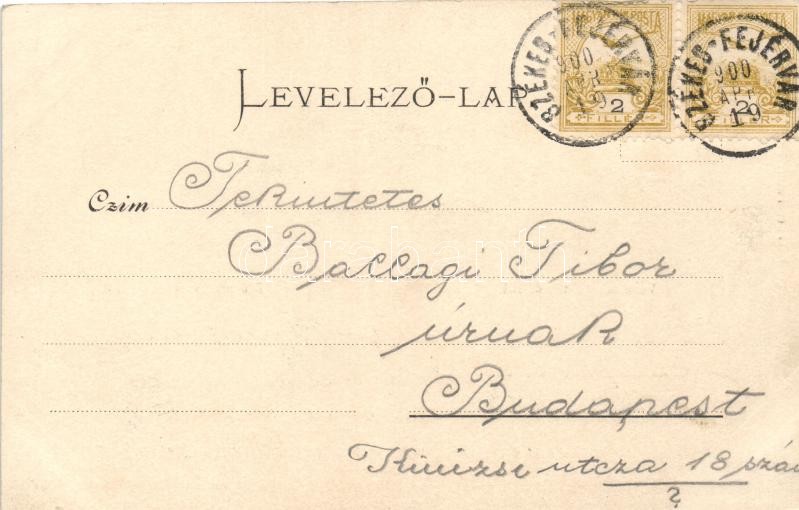 MAGYAR KIR. POSTA
SZÉKES-FEJÉRVÁR
900
APR
19
2
FILLÉR
SZÉKES-FEJÉRVÁR
900
APR
19
2
FILLÉR
LEVELEZŐ-LAP
Czim Tekintetes
Ballagi Tibor
úrnak
Budapest
Kinizsi utcza 18 szám
?